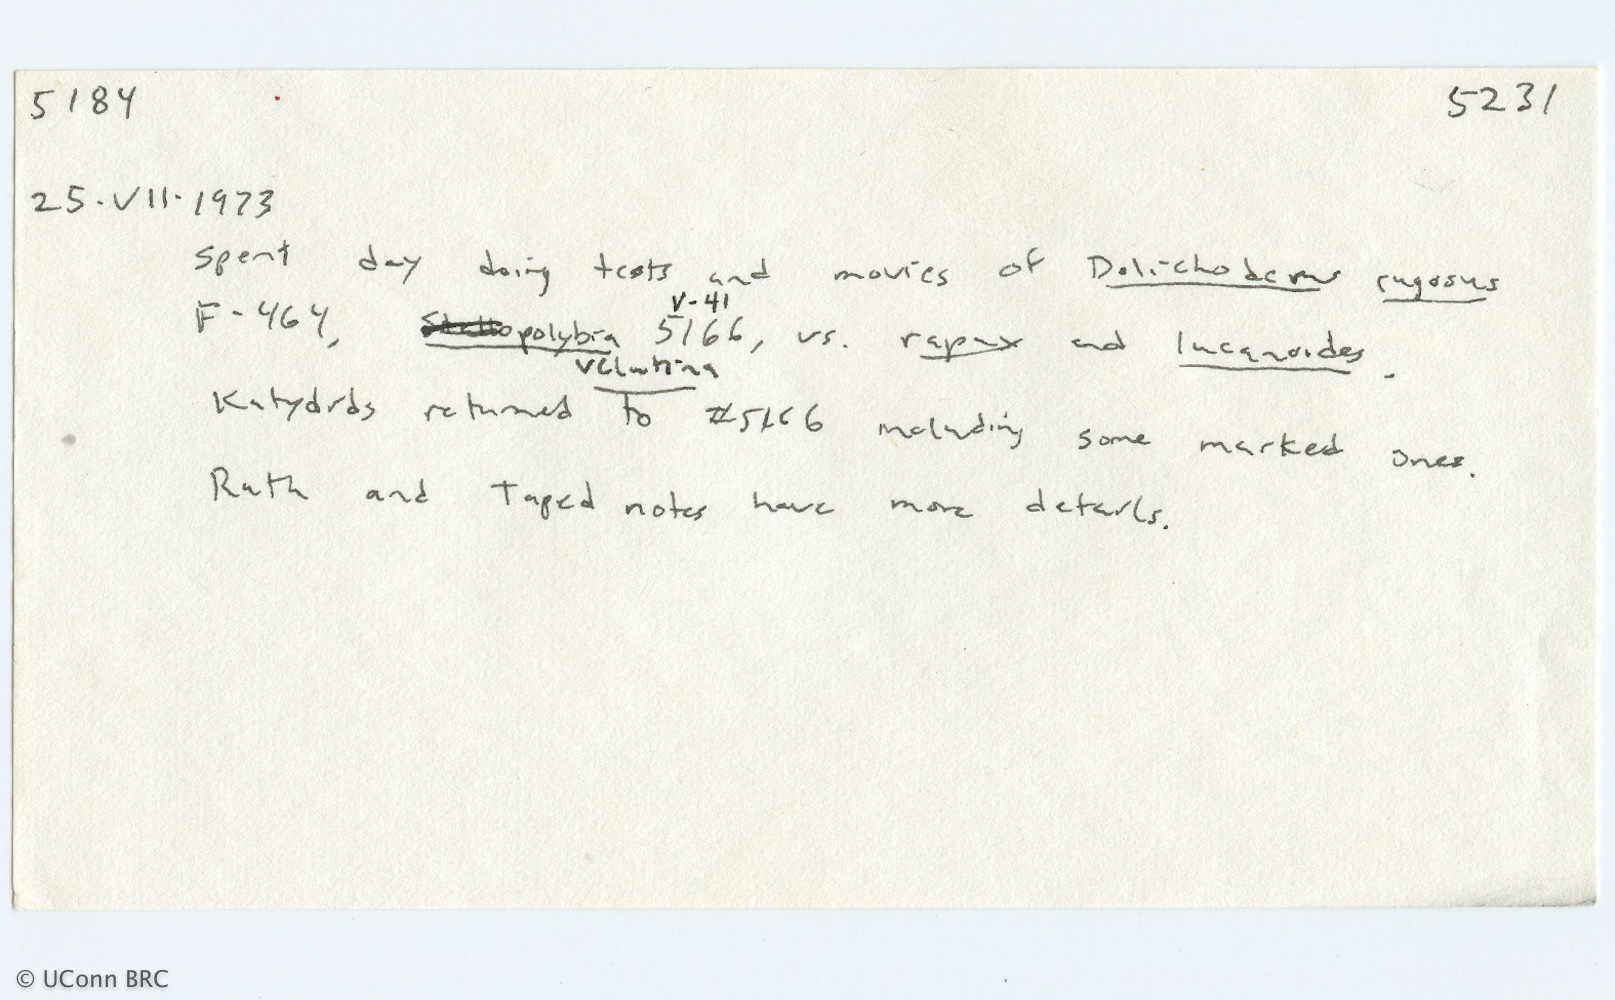 5184 5231
25.VII.1973
spent day doing tests and movies of Dolichoderus rugosus
V-41
F-464, polybia 5166, vs. rapax and lucanoides.
velutina
Katydids returned to #5166 including some marked ones.
Ruth and Taped notes have more details.
© UConn BRC